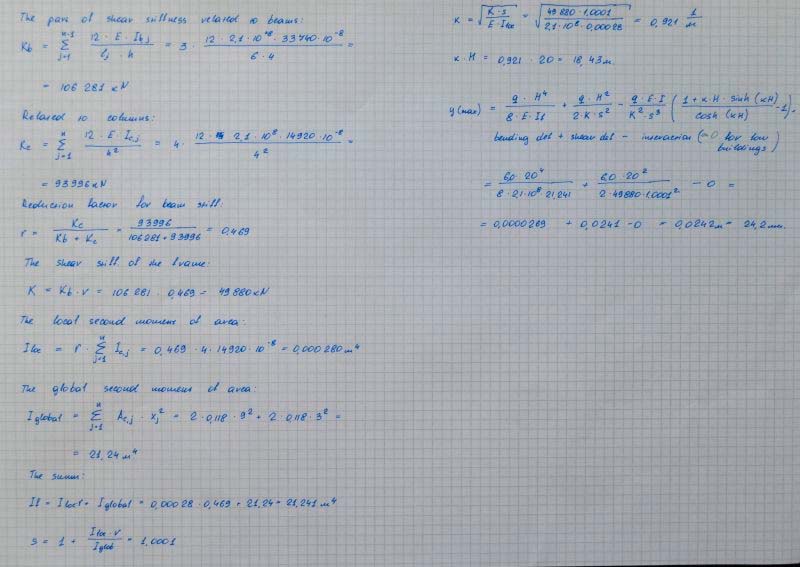 The part of shear stiffness related to beams:
K_b = Σ_{j=1}^{n-1} (12 · E · I_{b,j}) / (l_j · h) = 3 · (12 · 2,1 · 10^{+8} · 33740 · 10^{-8}) / (6 · 4) =
= 106 281 kN
Related to columns:
K_c = Σ_{j=1}^{n} (12 · E · I_{c,j}) / 4² = 4 · (12 · 2,1 · 10^8 · 14920 · 10^{-8}) / 4² =
= 93996 kN
Reduction factor for beam stiff:
r = K_c / (K_b + K_c) = 93996 / (106281 + 93996) = 0,469
The shear stiff. of the frame:
K = K_b · r = 106 281 · 0,469 = 49 880 kN
The local second moment of area:
I_loc = r · Σ_{j=1}^{n} I_{c,j} = 0,469 · 4 · 14920 · 10^{-8} = 0,000 280 m⁴
The global second moment of area:
I_global = Σ_{j=1}^{n} A_{c,j} · x_j² = 2 · 0,118 · 9² + 2 · 0,118 · 3² =
= 21,24 m⁴
The summ:
I_f = I_loc r + I_global = 0,00028 · 0,469 + 21,24 = 21,241 m⁴
s = 1 + (I_loc · r) / I_glob = 1,0001
κ = √((K · s) / (E · I_loc)) = √((49 880 · 1,0001) / (2,1 · 10^8 · 0,00028)) = 0,921 1/м
κ · H = 0,921 · 20 = 18,43 м.
y(max) = (q · H⁴) / (8 · E · I_f) + (q · H²) / (2 · K · s²) − (q · E · I) / (K² · s³) ((1 + κ · H · sinh (κH)) / cosh (κH) − 1) =
bending def + shear def − interaction (≈ 0 for low buildings)
= (60 · 20⁴) / (8 · 21 · 10^8 · 21,241) + (60 · 20²) / (2 · 49880 · 1,0001²) − 0 =
= 0,0000269 + 0,0241 − 0 = 0,0242 м = 24,2 мм.